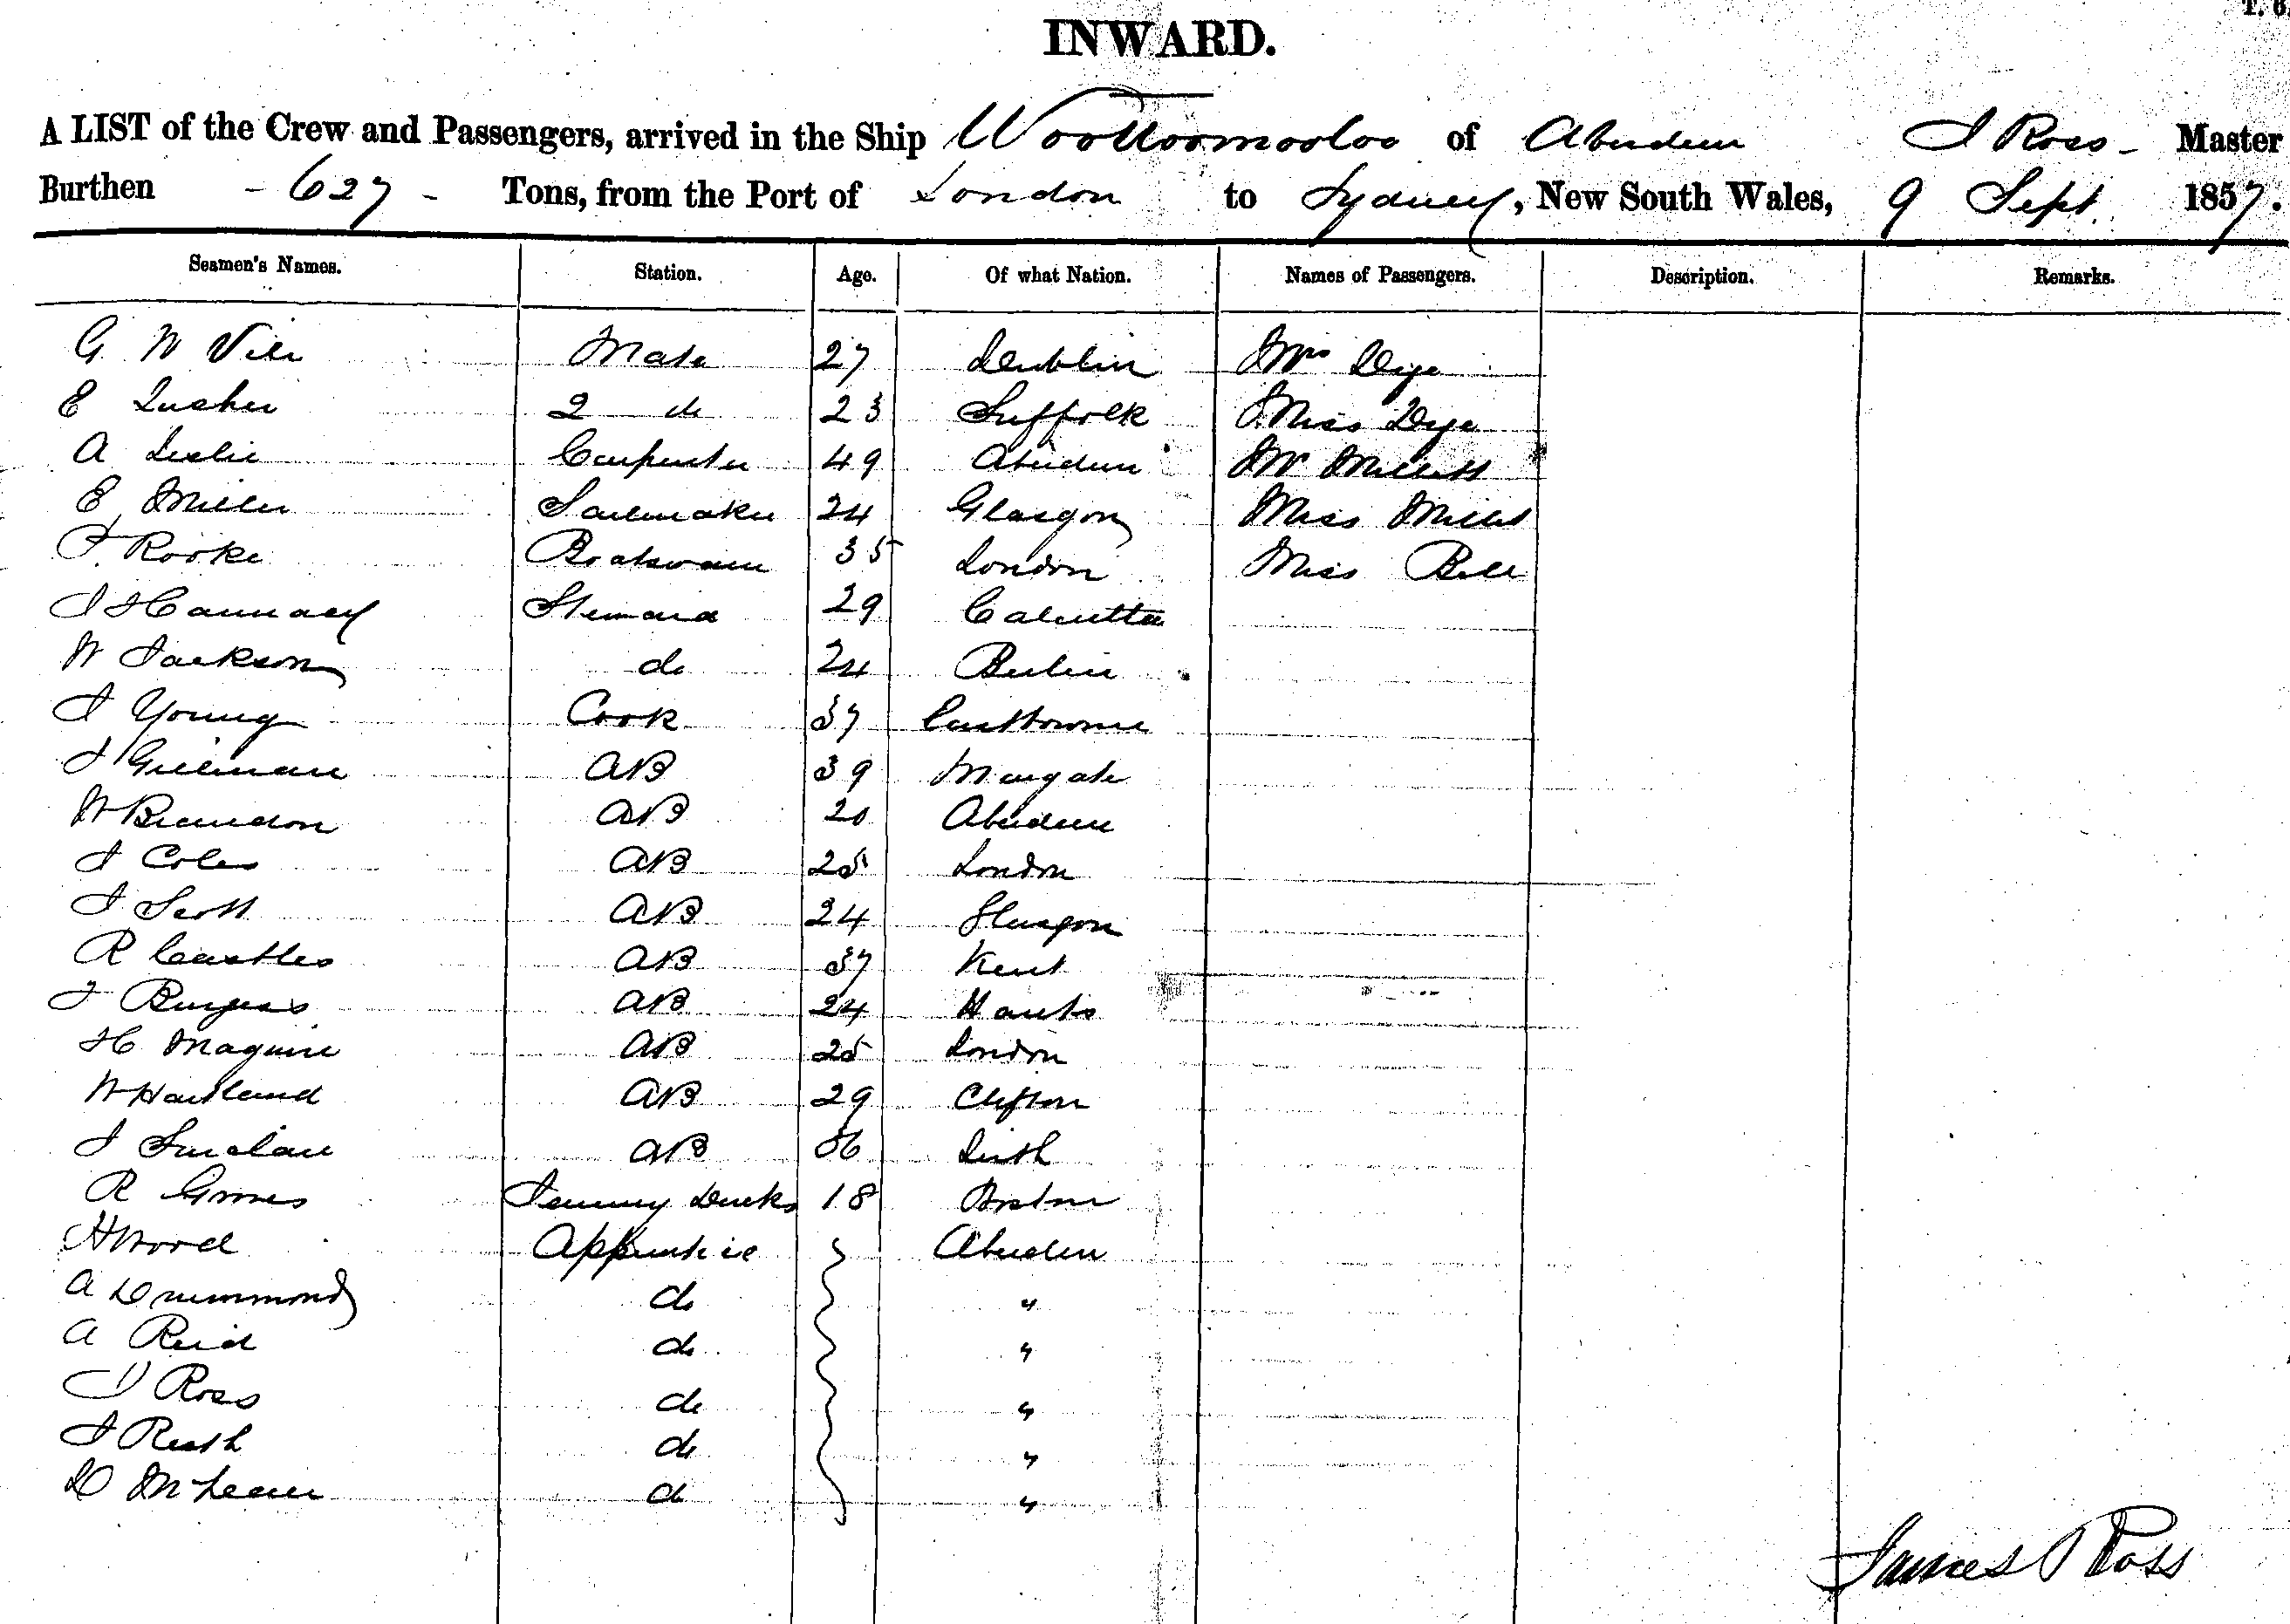 T. 6.
INWARD.
A LIST of the Crew and Passengers, arrived in the Ship Woolloomooloo of Aberdeen J Ross - Master
Burthen - 627 - Tons, from the Port of London to Sydney, New South Wales, 9 Sept. 1857.
Seamen's Names. Station. Age. Of what Nation. Names of Passengers. Description. Remarks.
G W Mate 27 Dublin Mrs Dye
E Lusher 2 do 23 Suffolk Miss Dye
A Leslie Carpenter 49 Aberdeen
E Miller Sailmaker 24 Glasgow Miss
Rooke Boatswain 35 London Miss Bell
J Hannay Steward 29 Calcutta
W Jackson do 24 Berlin
J Young Cook 37 Eastbourne
J AB 39 Margate
W AB 20 Aberdeen
J Coles AB 25 London
J Scott AB 24 Glasgow
R Castles AB 37 Kent
J Burgess AB 24 Hants
H Maguire AB 25 London
W Hartland AB 29 Clifton
J Sinclair AB 36 Leith
R Grimes Jemmy Ducks 18 Boston
H Wood Apprentice Aberdeen
A Drummond do "
A Reid do "
J Ross do "
J do "
D McLean do "
James Ross